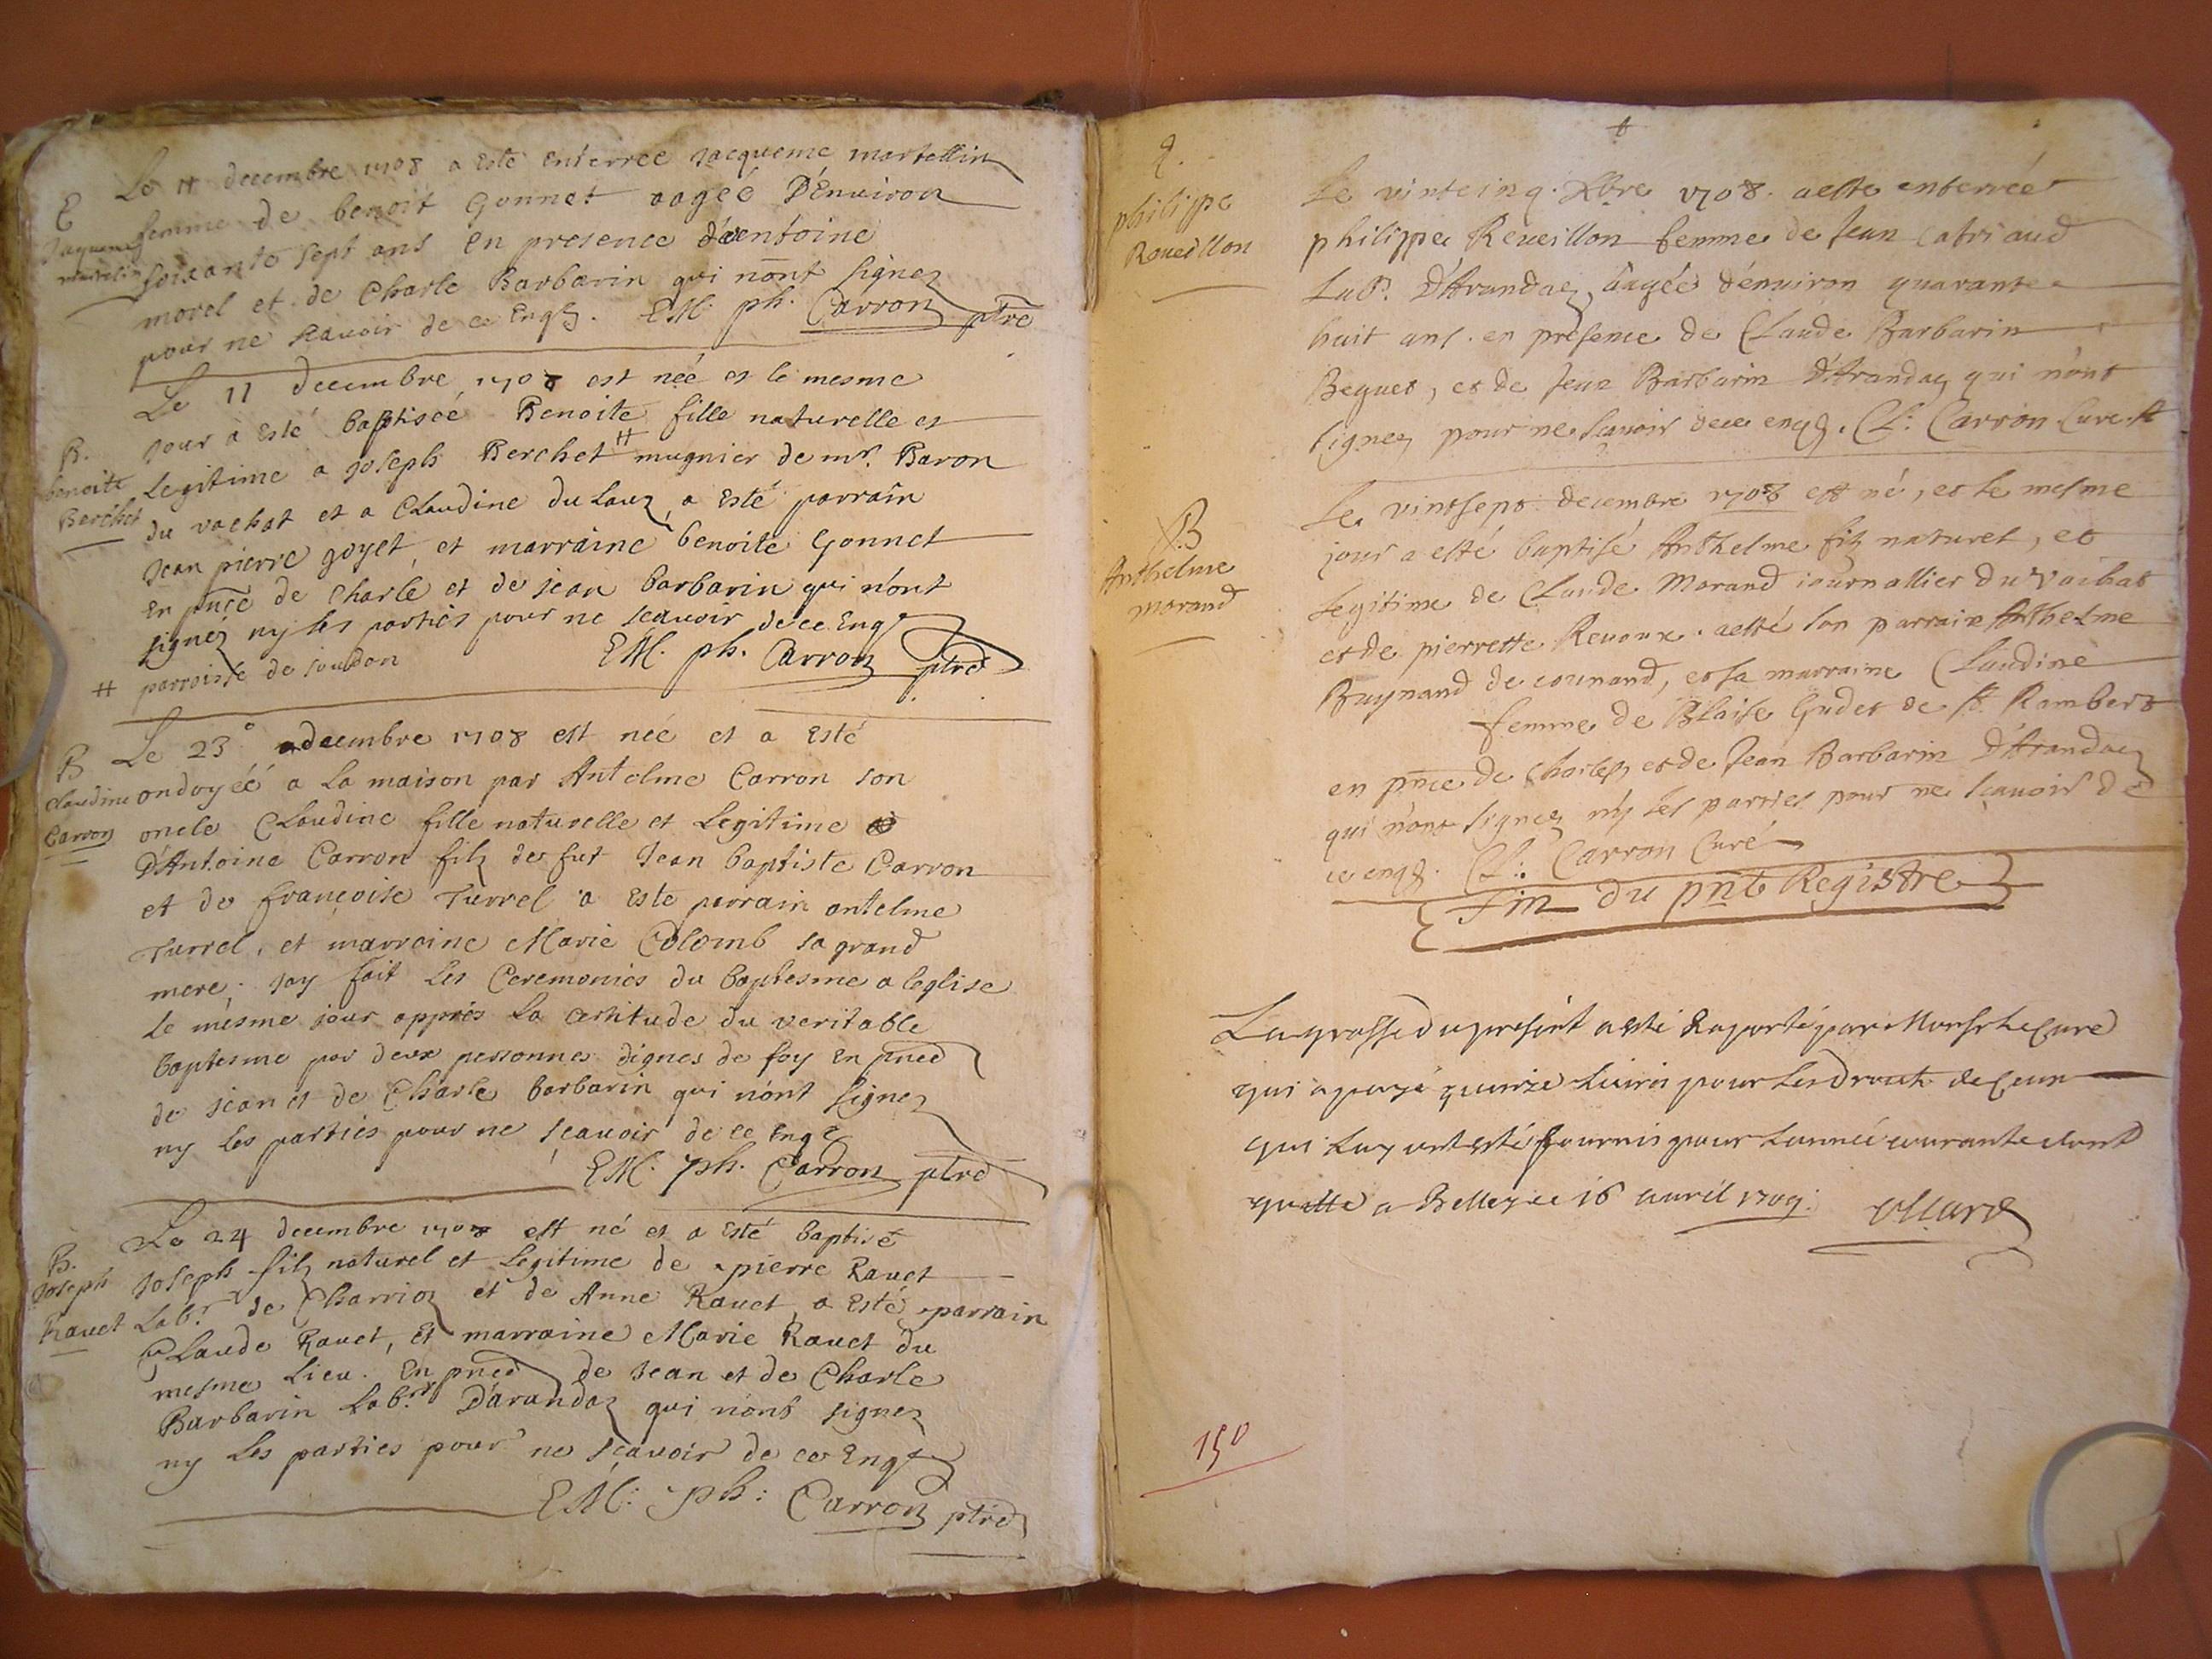 Le 11 decembre 1708 a Esté Enterrée Jacqueme martellin
femme de benoit Gonnet aagéé D'Enuiron
soixante sept ans En presence d'antoine
morel et de Charle Barbarin qui nont signez
pour ne scauoir de ce Enqs. EM. ph. Carron ptre
E
Jaqueme
martelin
Le 11 decembre 1708 est néé et le mesme
Jour a Esté baptisėé Benoite fille naturelle et
Legitime a Joseph Berchet # mugnier de mr. Baron
du vachat et a CLaudine du Lauz, a Esté parrain
Jean pierre goyet et marraine benoite Gonnet
En pnce de Charle et de jean barbarin qui n'ont
signez ny les parties pour ne scauoir de ce Enq
# parroisse de soudon EM. ph. Carron ptre
B.
benoite
Berchet
Le 23° decembre 1708 est néé et a Esté
ondoyéé a La maison par Antelme Carron son
oncle CLaudine fille naturelle et Legitime
D'Antoine Carron filz de fut Jean baptiste Carron
et de françoise Turrel a Este parrain antelme
Turrel, et marraine Marie Colomb sa grand
mere. Jay fait Les Ceremonies du baptesme a leglise
le mesme jour appres La certitude du veritable
baptesme par deux personnes dignes de foy En pnce
de jean et de Charle barbarin qui n'ont signez
ny Les parties pour ne scauoir de ce Enq
EM. ph. Carron ptre
B
Claudine
Carron
Le 24 decembre 1708 est né et a Esté baptisé
Joseph filz naturel et Legitime de pierre Rauet
Labr. de Charrioz et de Anne Rauet, a Esté parrain
CLaude Rauet, Et marraine Marie Rauet du
mesme Lieu. En pnce de Jean et de Charle
Barbarin Labrs D'arandaz qui n'ont signez
ny Les parties pour ne scauoir de ce Enq
EM: ph: Carron ptre
B.
Joseph
Rauet
Le vinteinq Xbre 1708. a esté enterréé
philippe Reueillon femme de Jean Catriaud
Lab. D'Arandaz, aagéé d'enuiron quarante
huit ans. en presence de CLaude Barbarin
Beguet, et de Jean Barbarin D'Arandaz qui n'ont
signez pour ne scauoir de ce enqs. Cl: Carron Cure
philippe
Roueillon
Le vintsept decembre 1708 est né, et le mesme
jour a esté baptisé Anthelme filz naturel, et
Legitime de CLaude Morand iournallier du Vachat
et de pierrette Reuoux. a esté son parrain Anthelme
Buynand de counand, et sa marraine CLaudine
femme de BLaise Gudet de St Rambert
en pnce de Charles, et de Jean Barbarin D'Arandaz
qui n'ont signez ny Les parties pour ne scauoir de
ce enqs. Cl: Carron Curé
B
Anthelme
morand
Fin du pnt Registre
La grosse du present a esté Raporté par Monsr Le Curé
qui a payé quinze Liures pour Les droits de Ceux
qui Luy ont esté fournis pour Lannéé courante dont
quitte a Belley ce 16 auril 1709.
150